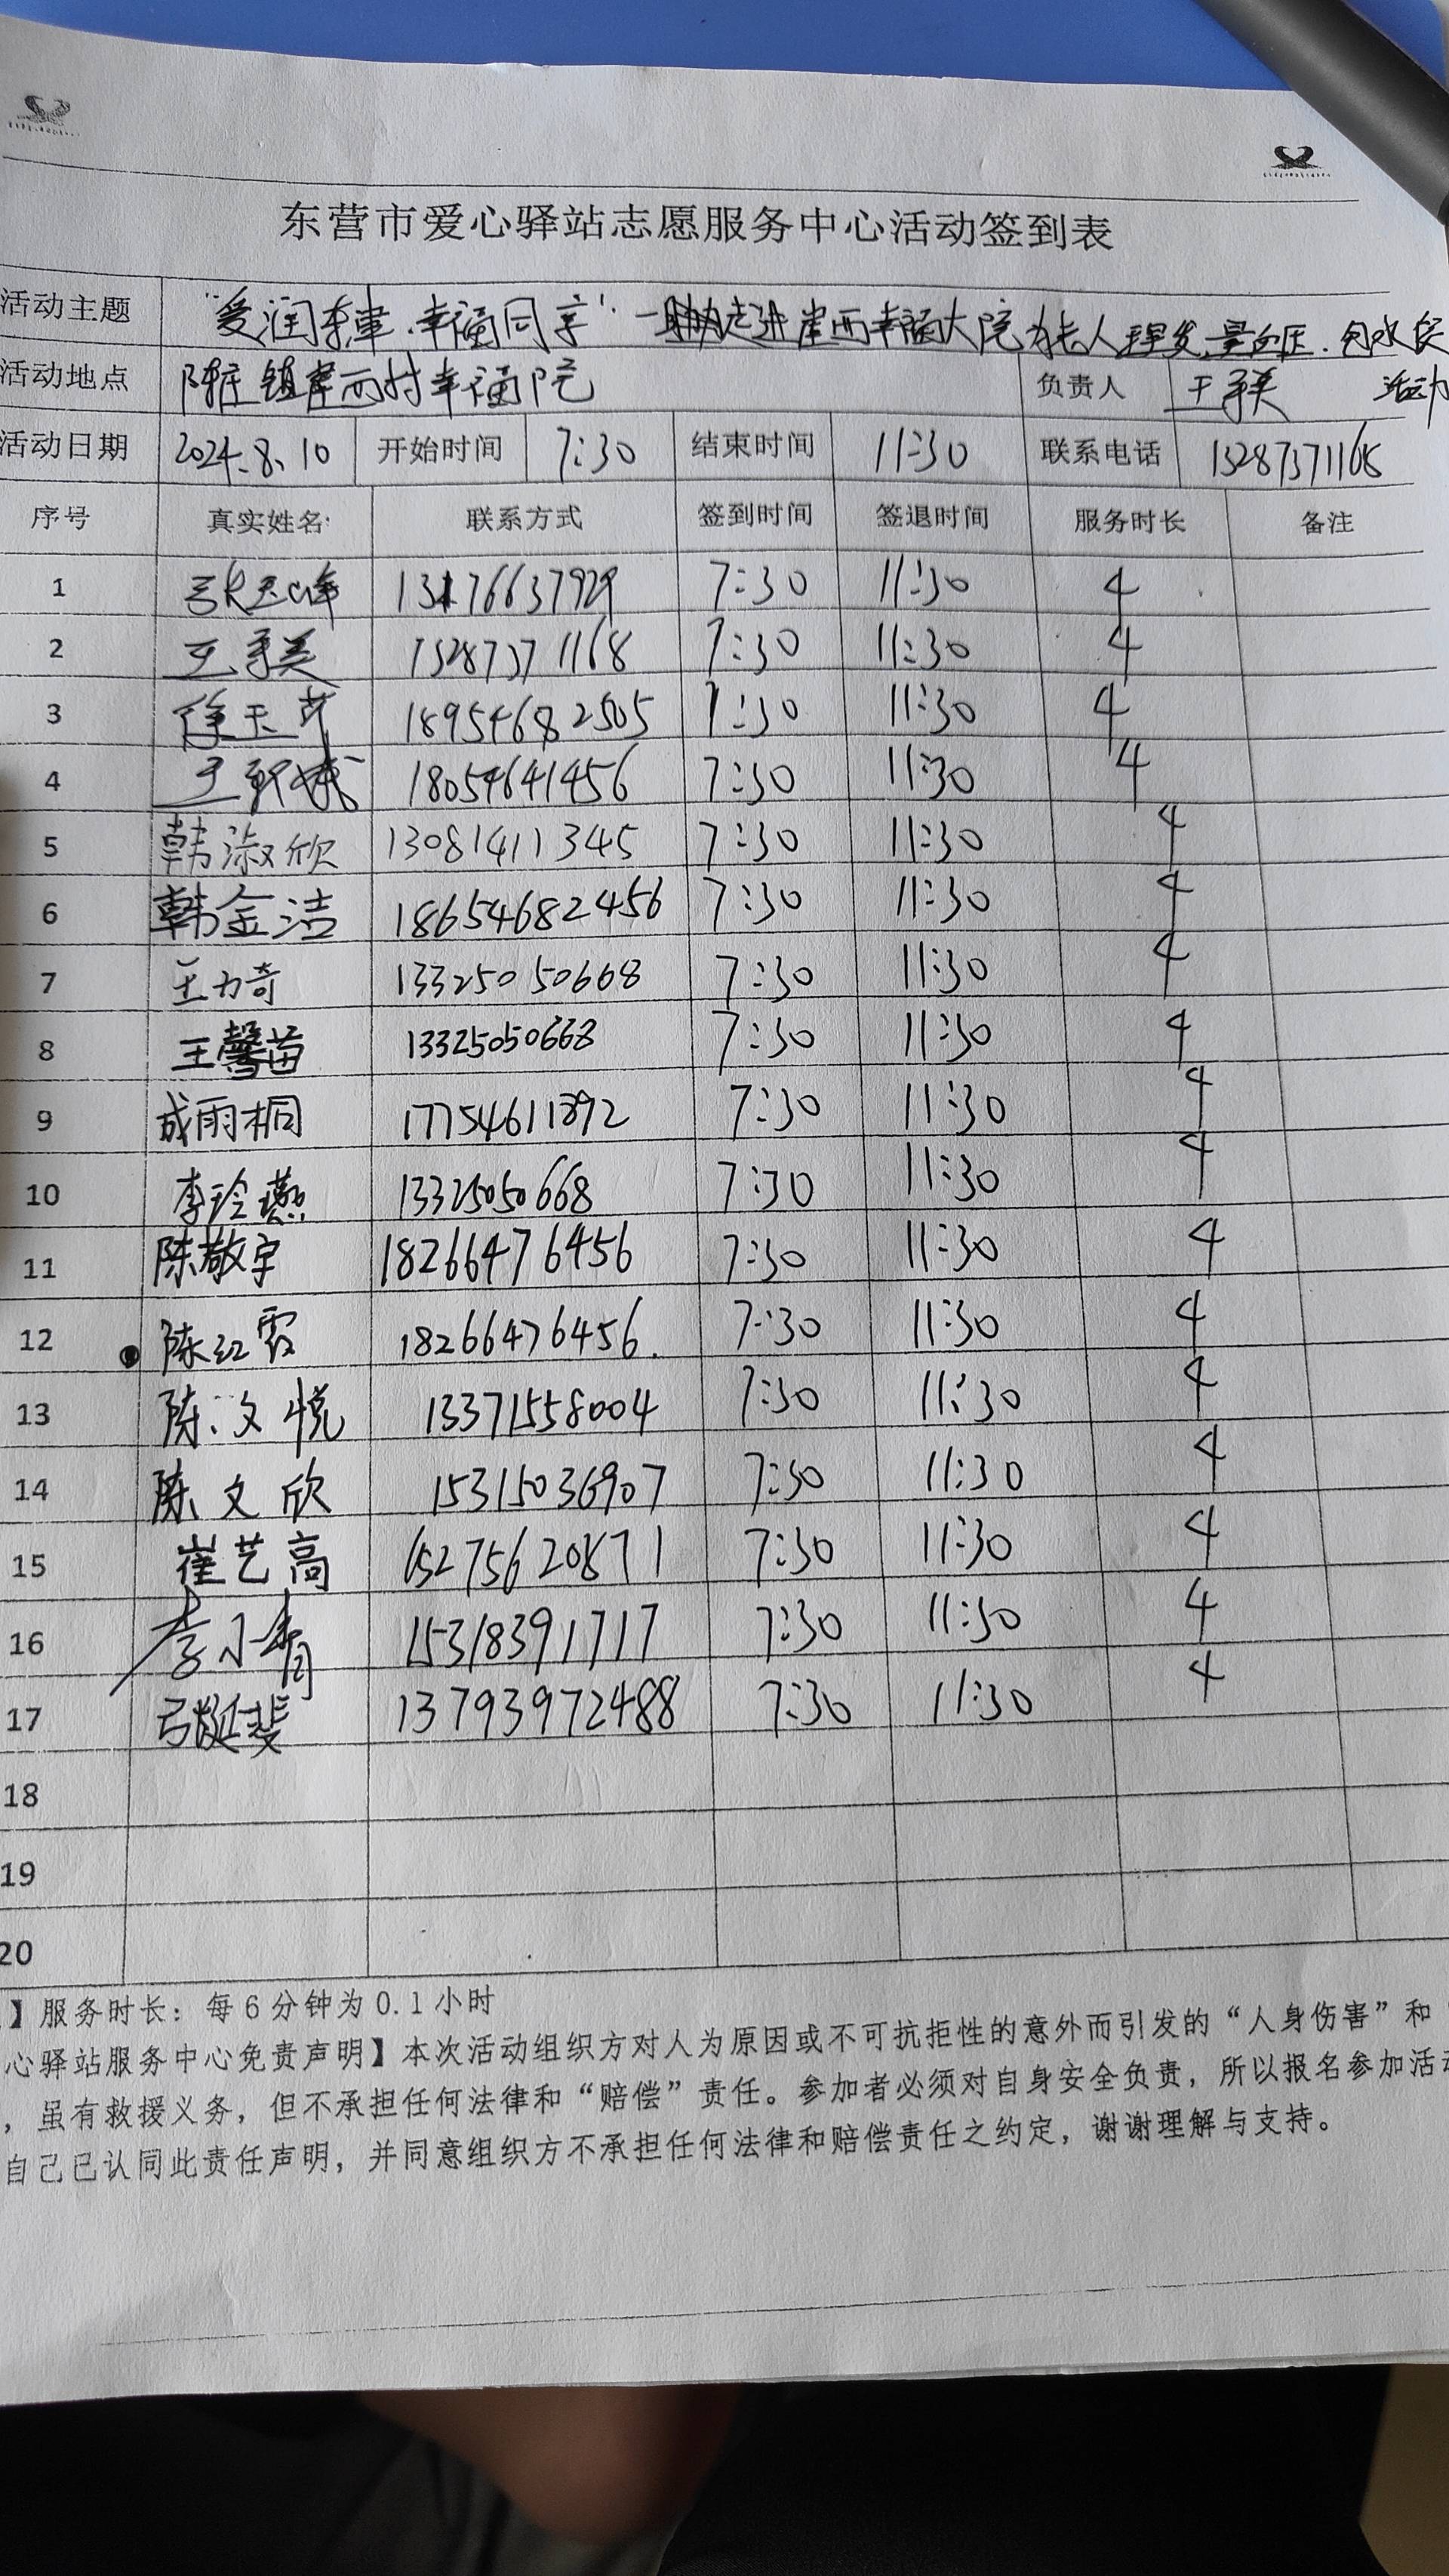 东营市爱心驿站志愿服务中心活动签到表
活动主题 "爱润东津·幸福同享"—走进崖西幸福大院为老人理发、量血压、包水饺
活动地点 陈庄镇崖西村幸福院 负责人 王秀美 活动
活动日期 2024.8.10 开始时间 7:30 结束时间 11:30 联系电话 15287371168
序号 真实姓名 联系方式 签到时间 签退时间 服务时长 备注
1 13176637929 7:30 11:30 4
2 王秀美 15287371168 7:30 11:30 4
3 徐玉芹 18954682505 7:30 11:30 4
4 18054641456 7:30 11:30 4
5 韩淑欣 13081411345 7:30 11:30 4
6 韩金洁 18654682456 7:30 11:30 4
7 王力奇 13325050668 7:30 11:30 4
8 王馨苗 13325050668 7:30 11:30 4
9 成雨桐 17754611892 7:30 11:30 4
10 李玲燕 13325050668 7:30 11:30 4
11 陈敬宇 18266476456 7:30 11:30 4
12 陈红霞 18266476456. 7:30 11:30 4
13 陈文悦 13371558004 7:30 11:30 4
14 陈文欣 15315036907 7:30 11:30 4
15 崔艺高 15275620871 7:30 11:30 4
16 李小青 15318391717 7:30 11:30 4
17 13793972488 7:30 11:30 4
18
19
20
】服务时长：每6分钟为0.1小时
心驿站服务中心免责声明】本次活动组织方对人为原因或不可抗拒性的意外而引发的“人身伤害”和
，虽有救援义务，但不承担任何法律和“赔偿”责任。参加者必须对自身安全负责，所以报名参加活动
自己已认同此责任声明，并同意组织方不承担任何法律和赔偿责任之约定，谢谢理解与支持。